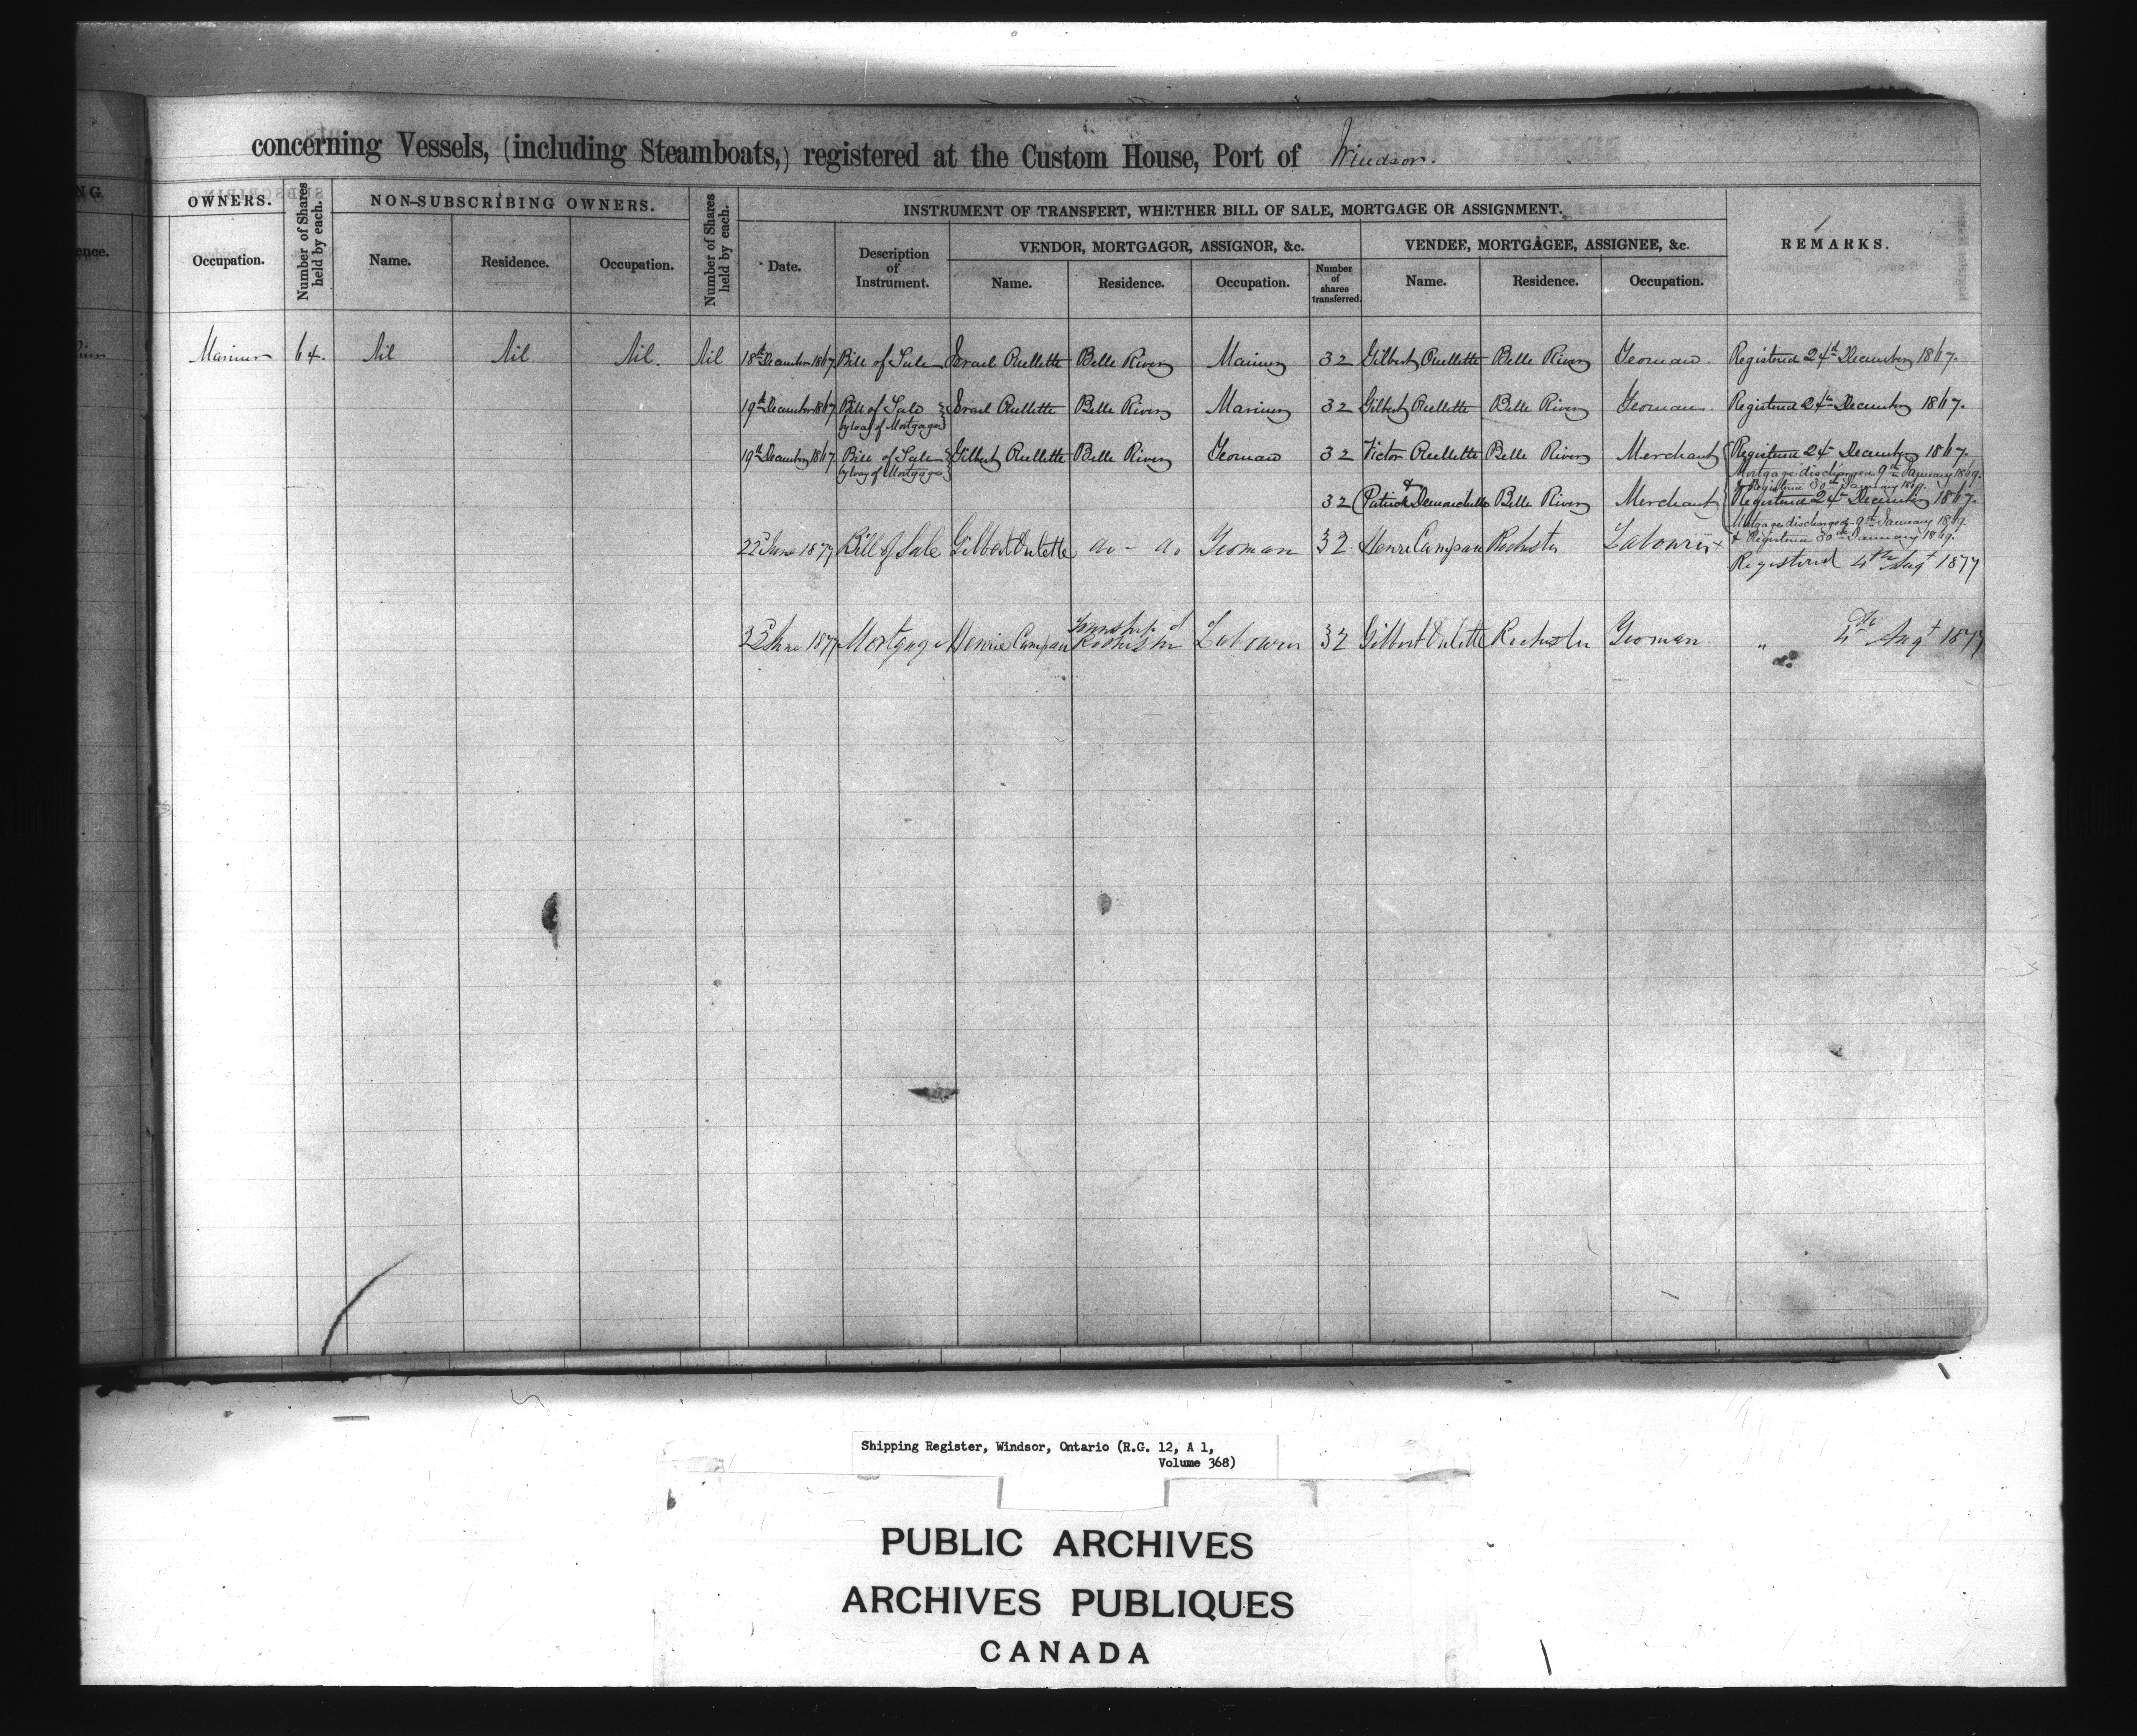 concerning Vessels, (including Steamboats,) registered at the Custom House, Port of Windsor.
NG
OWNERS.
Number of Shares held by each.
NON-SUBSCRIBING OWNERS.
Number of Shares held by each.
INSTRUMENT OF TRANSFERT, WHETHER BILL OF SALE, MORTGAGE OR ASSIGNMENT.
REMARKS.
VENDOR, MORTGAGOR, ASSIGNOR, &c.
VENDEE, MORTGAGEE, ASSIGNEE, &c.
ence.
Occupation.
Name.
Residence.
Occupation.
Date.
Description of Instrument.
Name.
Residence.
Occupation.
Number of shares transferred.
Name.
Residence.
Occupation.
Mariner 64. Nil Nil Nil. Nil 18th December 1867 Bill of Sale Israel Ouellette Belle River Mariner 32 Gilbert Ouellette Belle River Yeoman Registered 24th December 1867.
19th December 1867 Bill of Sale Israel Ouellette Belle River Mariner 32 Gilbert Ouellette Belle River Yeoman. Registered 24th December 1867.
by way of Mortgage
19th December 1867 Bill of Sale Gilbert Ouellette Belle River Yeoman 32 Victor Ouellette Belle River Merchant Registered 24th December 1867.
by way of Mortgage Mortgage discharged 9th January 1869.
& Registered 30th January 1869.
32 & Patrick Demarchelle Belle River Merchant Registered 24th December 1867.
Mortgage discharged 9th January 1869.
& Registered 30th January 1869.
22d June 1877 Bill of Sale Gilbert Oulette do - do Yeoman 32 Henri Campau Rochester Labourer
Registered 4th Augt 1877
June 1877 Mortgage Henrie Campau Township of Rochester Labourer 32 Gilbert Oulette Rochester Yeoman " 4th Augt 1877
Shipping Register, Windsor, Ontario (R.G. 12, A 1,
Volume 368)
PUBLIC ARCHIVES
ARCHIVES PUBLIQUES
CANADA